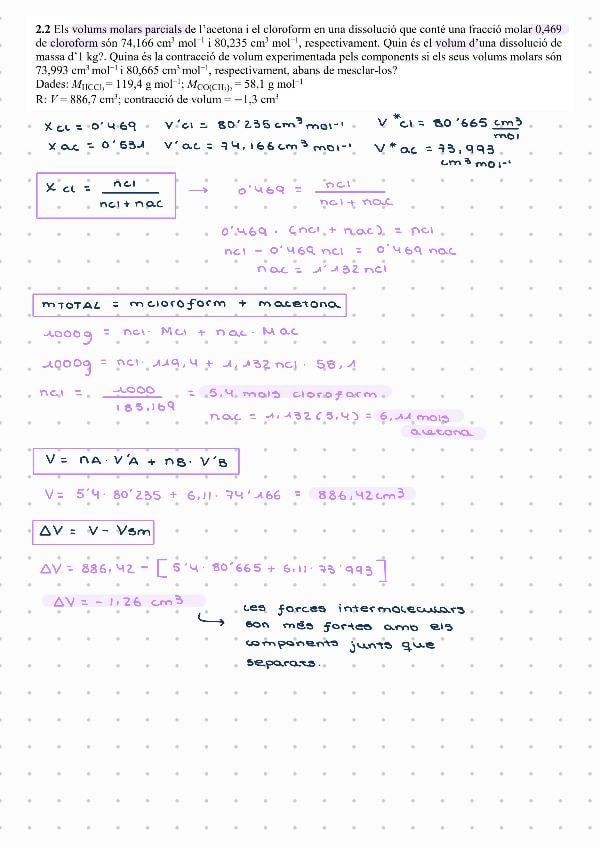 2.2 Els volums molars parcials de l'acetona i el cloroform en una dissolució que conté una fracció molar 0,469
de cloroform són 74,166 cm³ mol⁻¹ i 80,235 cm³ mol⁻¹, respectivament. Quin és el volum d'una dissolució de
massa d'1 kg?. Quina és la contracció de volum experimentada pels components si els seus volums molars són
73,993 cm³ mol⁻¹ i 80,665 cm³ mol⁻¹, respectivament, abans de mesclar-los?
Dades: M_HCCl₃ = 119,4 g mol⁻¹; M_CO(CH₃)₂ = 58,1 g mol⁻¹
R: V = 886,7 cm³; contracció de volum = −1,3 cm³
Xcl = 0'469 V'cl = 80'235 cm³ mol⁻¹ V*cl = 80'665 cm³/mol
Xac = 0'531 V'ac = 74,166 cm³ mol⁻¹ V*ac = 73,993
cm³ mol⁻¹
Xcl = ncl / ncl + nac → 0'469 = ncl / ncl + nac
0'469 · (ncl + nac) = ncl
ncl - 0'469 ncl = 0'469 nac
nac = 1'132 ncl
mTOTAL = mcloroform + macetona
1000g = ncl · Mcl + nac · Mac
1000g = ncl · 119,4 + 1,132 ncl · 58,1
ncl = 1000 / 185,169 = 5,4 mols cloroform.
nac = 1,132 (5,4) = 6,11 mols
acetona
V = nA · V'A + nB · V'B
V = 5'4 · 80'235 + 6,11 · 74'166 = 886,42 cm³
ΔV = V - Vsm
ΔV = 886,42 - [5'4 · 80'665 + 6,11 · 73'993]
ΔV = - 1,26 cm³
Les forces intermoleculars
son més fortes amb els
components junts que
separats.